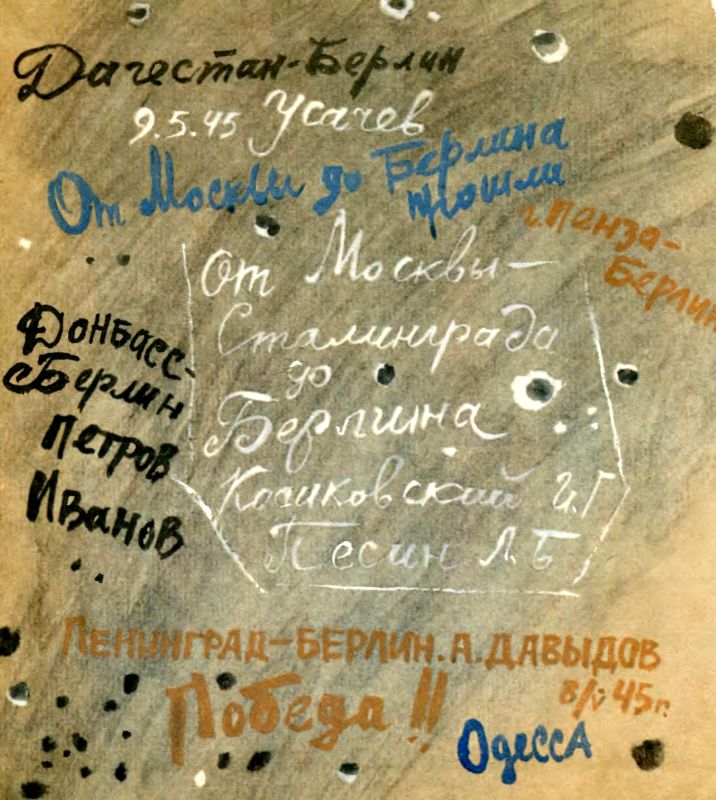 Дагестан-Берлин
9.5.45 Усачев
От Москвы до Берлина
прошли
г. Пенза-
Берлин
От Москвы-
Сталинграда
до
Берлина
Косиковский И.Г
Песин Л.Б
Донбасс-
Берлин
Петров
Иванов
ЛЕНИНГРАД-БЕРЛИН. А. ДАВЫДОВ
8/V 45г.
Победа!!
Одесса